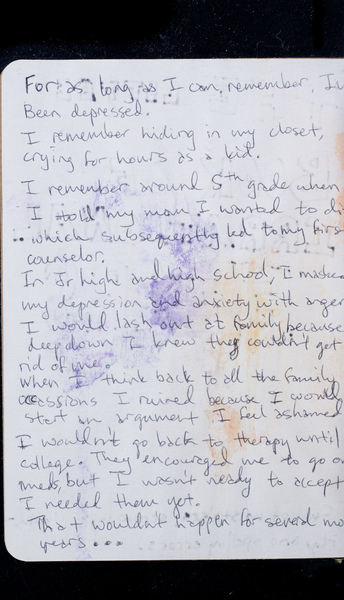 For as long as I can remember, I'v
Been depressed.
I remember hiding in my closet,
crying for hours as a kid.
I remember around 5th grade when
I told my mom I wanted to di
which subsequently led to my firs
counselor.
In Jr high and high school, I maske
my depression and anxiety with anger
I would lash out at family because
deep down I knew they couldn't get
rid of me.
When I think back to all the family
occassions I ruined because I would
start an argument I feel ashamed
I wouldn't go back to therapy until
college. They encouraged me to go o
meds, but I wasn't ready to accept
I needed them yet.
That wouldn't happen for several mo
years...